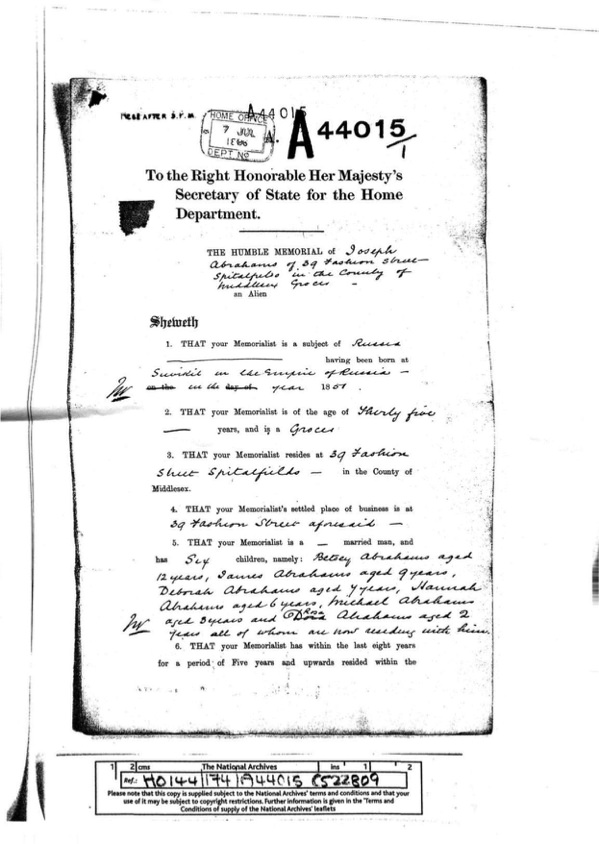 A44015
HOME OFFICE
7 JUL
DEPT. No
A44015/1
To the Right Honorable Her Majesty's
Secretary of State for the Home
Department.
THE HUMBLE MEMORIAL of Joseph
Abrahams of 39 Fashion Street
Spitalfields in the County of
Middlesex Grocer
an Alien
Sheweth
1. THAT your Memorialist is a subject of Russia
having been born at
in the Empire of Russia —
on the in the day of year 1851.
2. THAT your Memorialist is of the age of Thirty five
years, and is a Grocer
3. THAT your Memorialist resides at 39 Fashion
Street Spitalfields — in the County of
Middlesex.
4. THAT your Memorialist's settled place of business is at
39 Fashion Street aforesaid —
5. THAT your Memorialist is a — married man, and
has Six children, namely: Betsey Abrahams aged
12 years, James Abrahams aged 9 years,
Deborah Abrahams aged 7 years, Hannah
Abrahams aged 6 years, Michael Abrahams
aged 3 years and Rosa Abrahams aged 2
years all of whom are now residing with him.
6. THAT your Memorialist has within the last eight years
for a period of Five years and upwards resided within the
1 2 cms The National Archives ins 1 2
Ref.: HO144/174/A44015 C522809
Please note that this copy is supplied subject to the National Archives' terms and conditions and that your
use of it may be subject to copyright restrictions. Further information is given in the 'Terms and
Conditions of supply of the National Archives' leaflets